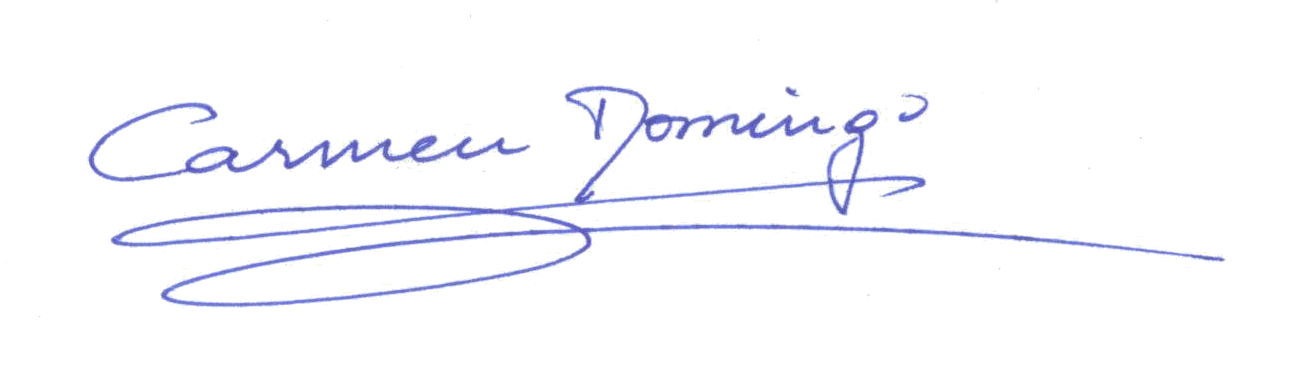 Carmen Domingo